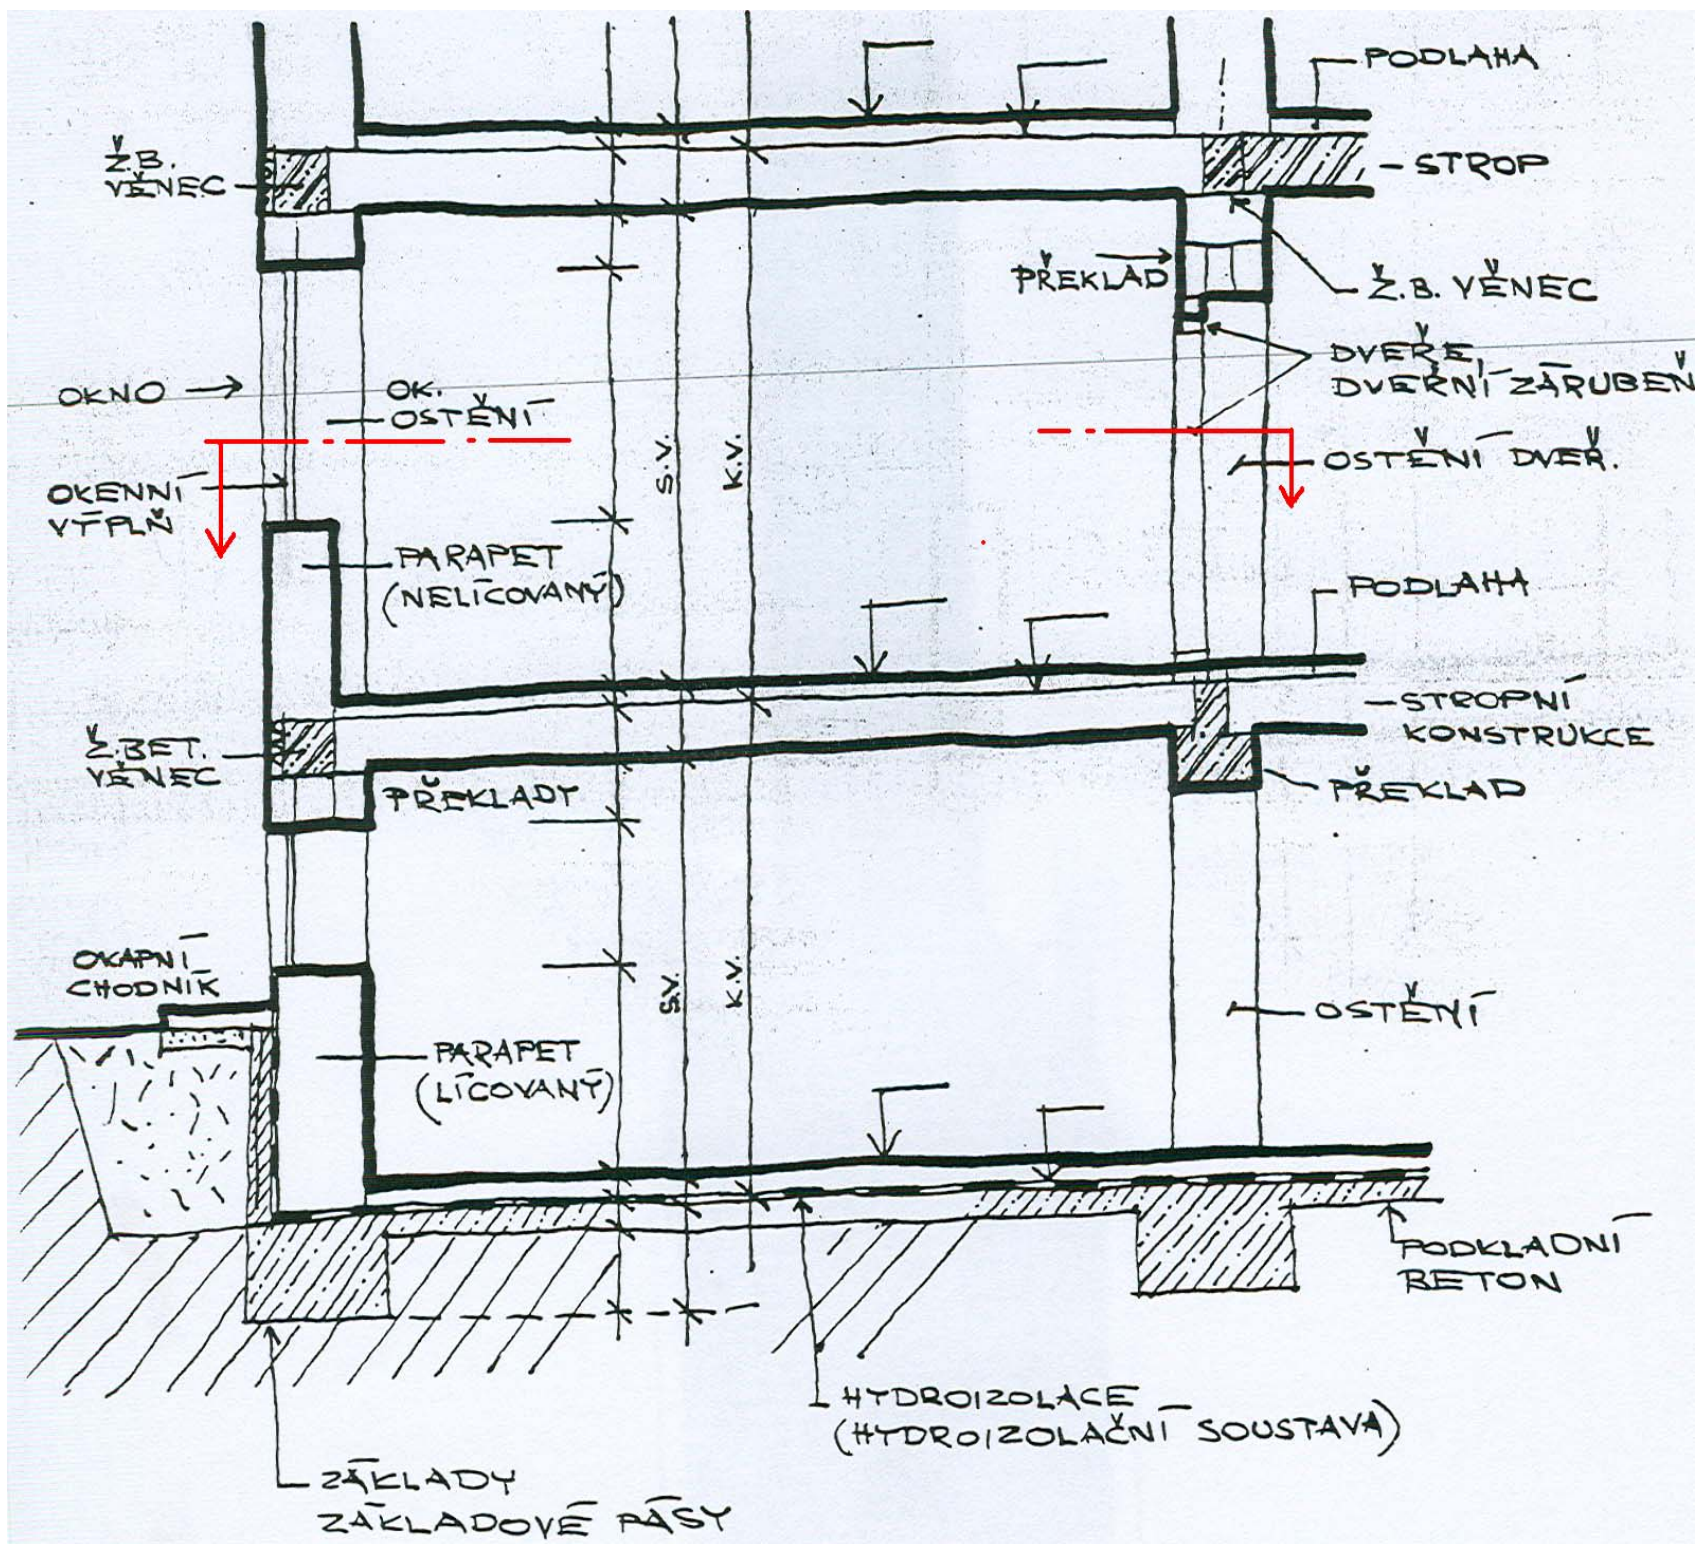 PODLAHA
Ž.B.
VĚNEC
STROP
PŘEKLAD
Ž.B. VĚNEC
DVEŘE,
DVEŘNÍ ZÁRUBEŇ
OKNO
OK.
OSTĚNÍ
S.V.
K.V.
OSTĚNÍ DVEŘ.
OKENNÍ
VÝPLŇ
PARAPET
(NELÍCOVANÝ)
PODLAHA
STROPNÍ
KONSTRUKCE
Ž.BET.
VĚNEC
PŘEKLADY
PŘEKLAD
OKAPNÍ
CHODNÍK
S.V.
K.V.
OSTĚNÍ
PARAPET
(LÍCOVANÝ)
PODKLADNÍ
BETON
HYDROIZOLACE
(HYDROIZOLAČNÍ SOUSTAVA)
ZÁKLADY
ZÁKLADOVÉ PÁSY